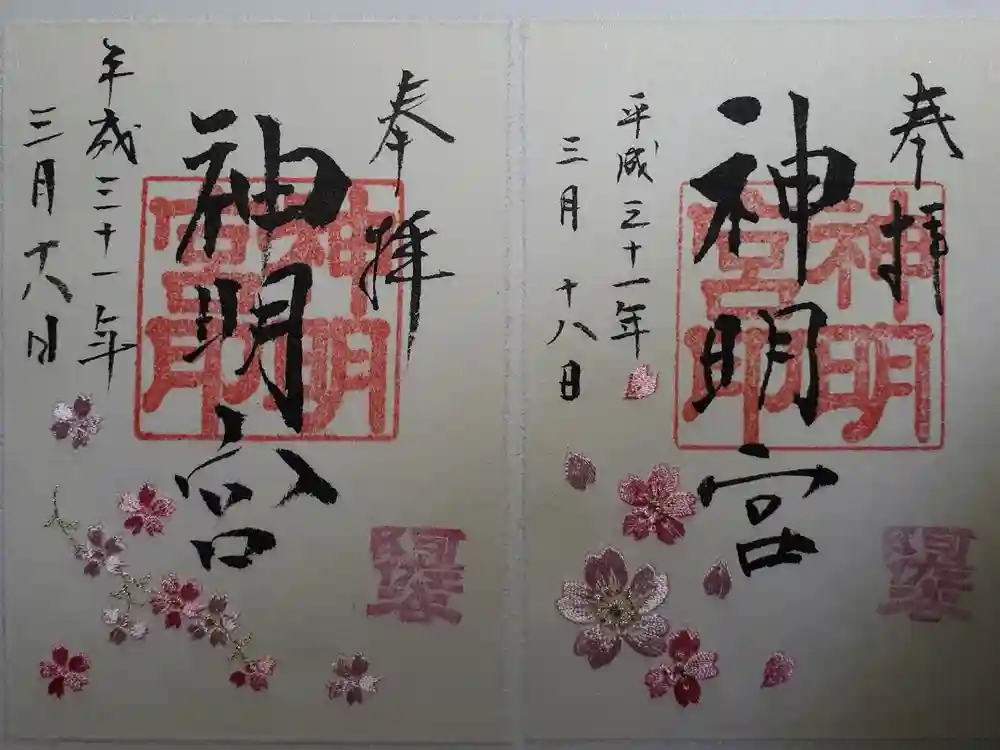 奉拝
神明宮
神明宮印
平成三十一年
三月十八日
奉拝
神明宮
神明宮印
平成三十一年
三月十八日